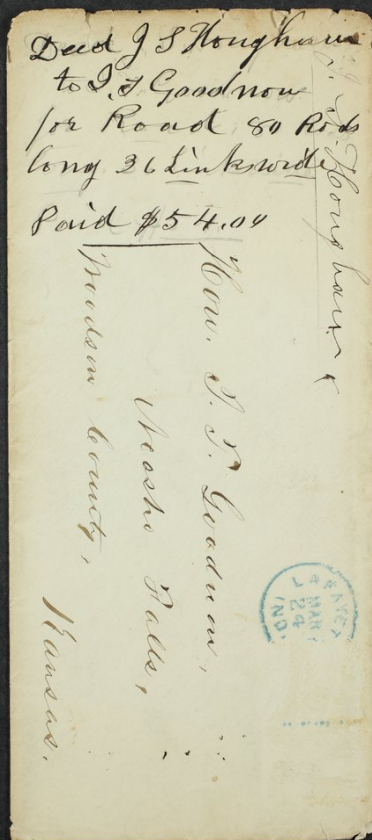 Deed J S Hougham
to I. T. Goodnow
for Road 80 Rods
long 36 Links wide
Paid $54.00
J. S. Hougham
Hon. I. T. Goodnow,
Neosho Falls,
Woodson County,
Kansas.
LAFAYET
IND.
MAR
24